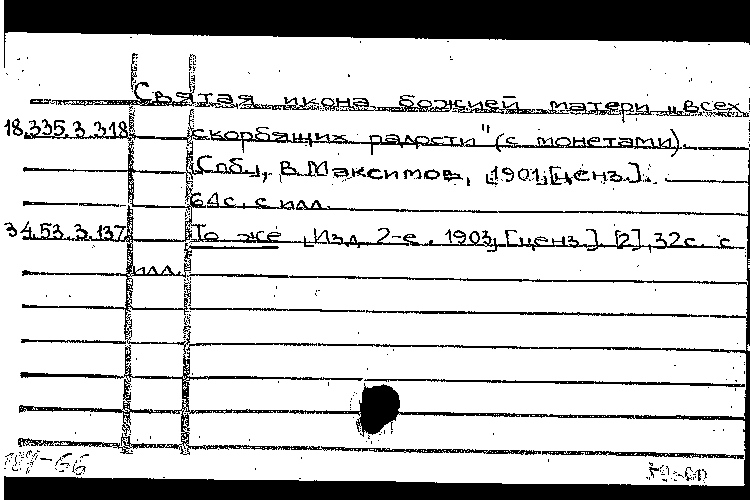 Святая икона божией матери „всех
18.335.3.318 скорбящих радости" (с монетами).
[Спб.], В. Максимов, [1901] [ценз.].
64 с. с илл.
34.53.3.137 То же [Изд. 2-е. 1903] [ценз.]. [2], 32 с. с
илл.